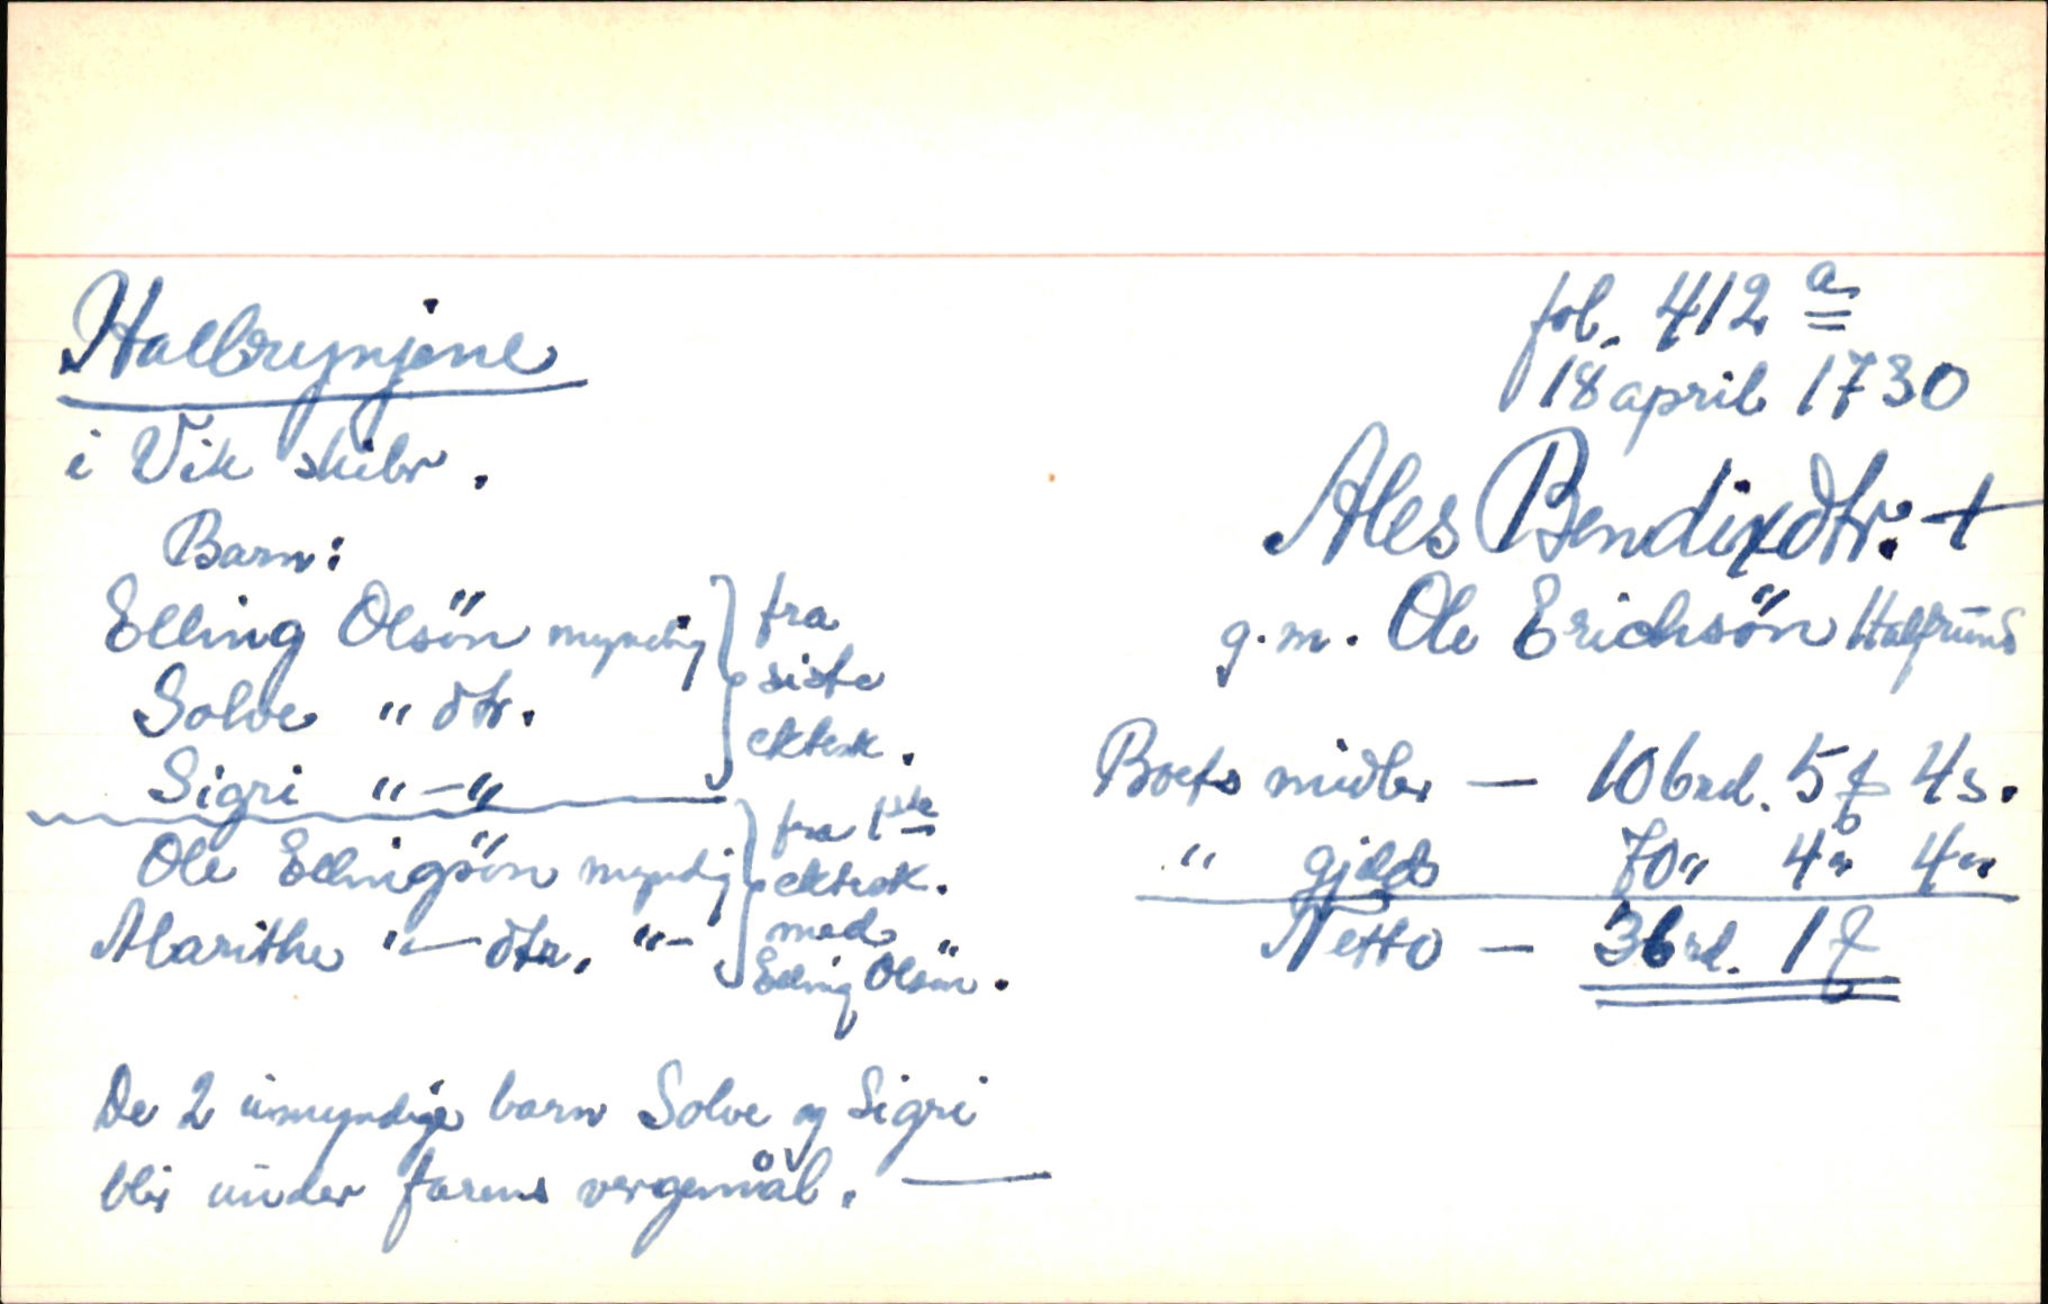 Halbrynjene
i Vik skibr.
fol. 412 a
18 april 1730
Ales Bendixdtr. +
g.m. Ole Erichsön Halfruns
Barn:
Elling Olsön myndig } fra
Solve " dtr. siste
Sigri " - " ektesk.
Ole Ellingsön myndig } fra 1ste
ektesk.
Marithe " — dtr. " - med
Elling Olsön.
Boets midler — 106 rd. 5 ƒ 4 s.
" gjeld 70 " 4 " 4 "
Netto — 36 rd. 1 ƒ
De 2 umyndige barn Solve og Sigri
blir under farens vergemål. —